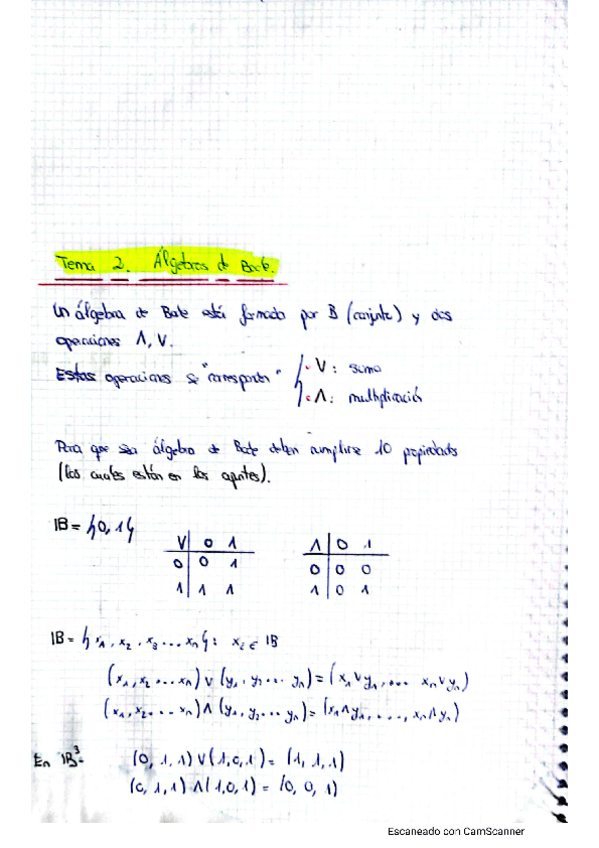 Tema 2. Álgebras de Boole.
Un álgebra de Boole está formado por B (conjunto) y dos
operaciones Λ, V.
Estas operaciones se "corresponden" { · V : suma
· Λ : multiplicación
Para que sea álgebra de Boole deben cumplirse 10 propiedades
(las cuales están en los apuntes).
IB = {0, 1}
V | 0 1
0 | 0 1
1 | 1 1
Λ | 0 1
0 | 0 0
1 | 0 1
IB = {x₁, x₂, x₃ ... xₙ} : xᵢ ∈ IB
(x₁, x₂ ... xₙ) V (y₁, y₂ ... yₙ) = (x₁ V y₁, ... xₙ V yₙ)
(x₁, x₂ ... xₙ) Λ (y₁, y₂ ... yₙ) = (x₁ Λ y₁, ..., xₙ Λ yₙ)
En IB³:
(0, 1, 1) V (1, 0, 1) = (1, 1, 1)
(0, 1, 1) Λ (1, 0, 1) = (0, 0, 1)
Escaneado con CamScanner